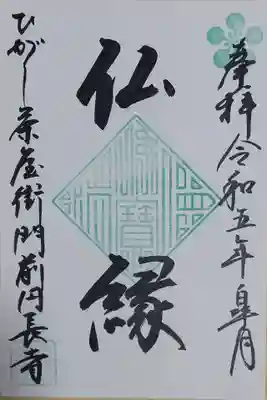 奉拝 令和五年 皐月
仏縁
ひがし茶屋街門前円長寺